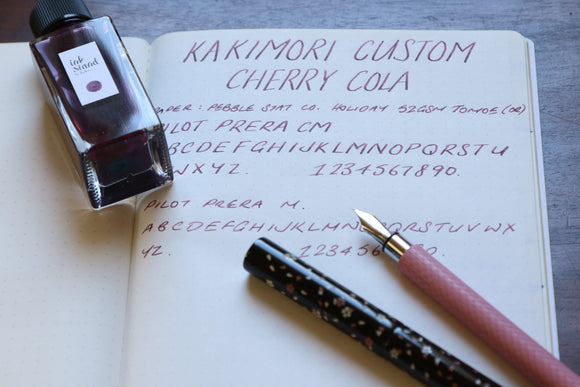 ink
stand
KAKIMORI CUSTOM
CHERRY COLA
PAPER: PEBBLE STAT CO. HOLIDAY 52GSM TOMOE (OR)
PILOT PRERA CM
ABCDEFGHIJKLMNOPQRSTU
VWXYZ. 1234567890.
PILOT PRERA M.
ABCDEFGHIJKLMNOPQRSTUVWX
YZ. 1234567890.